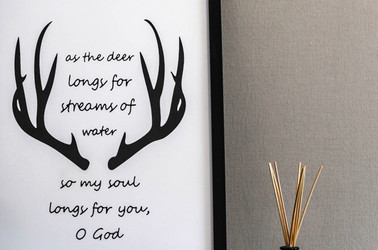 as the deer
longs for
streams of
water
so my soul
longs for you,
O God